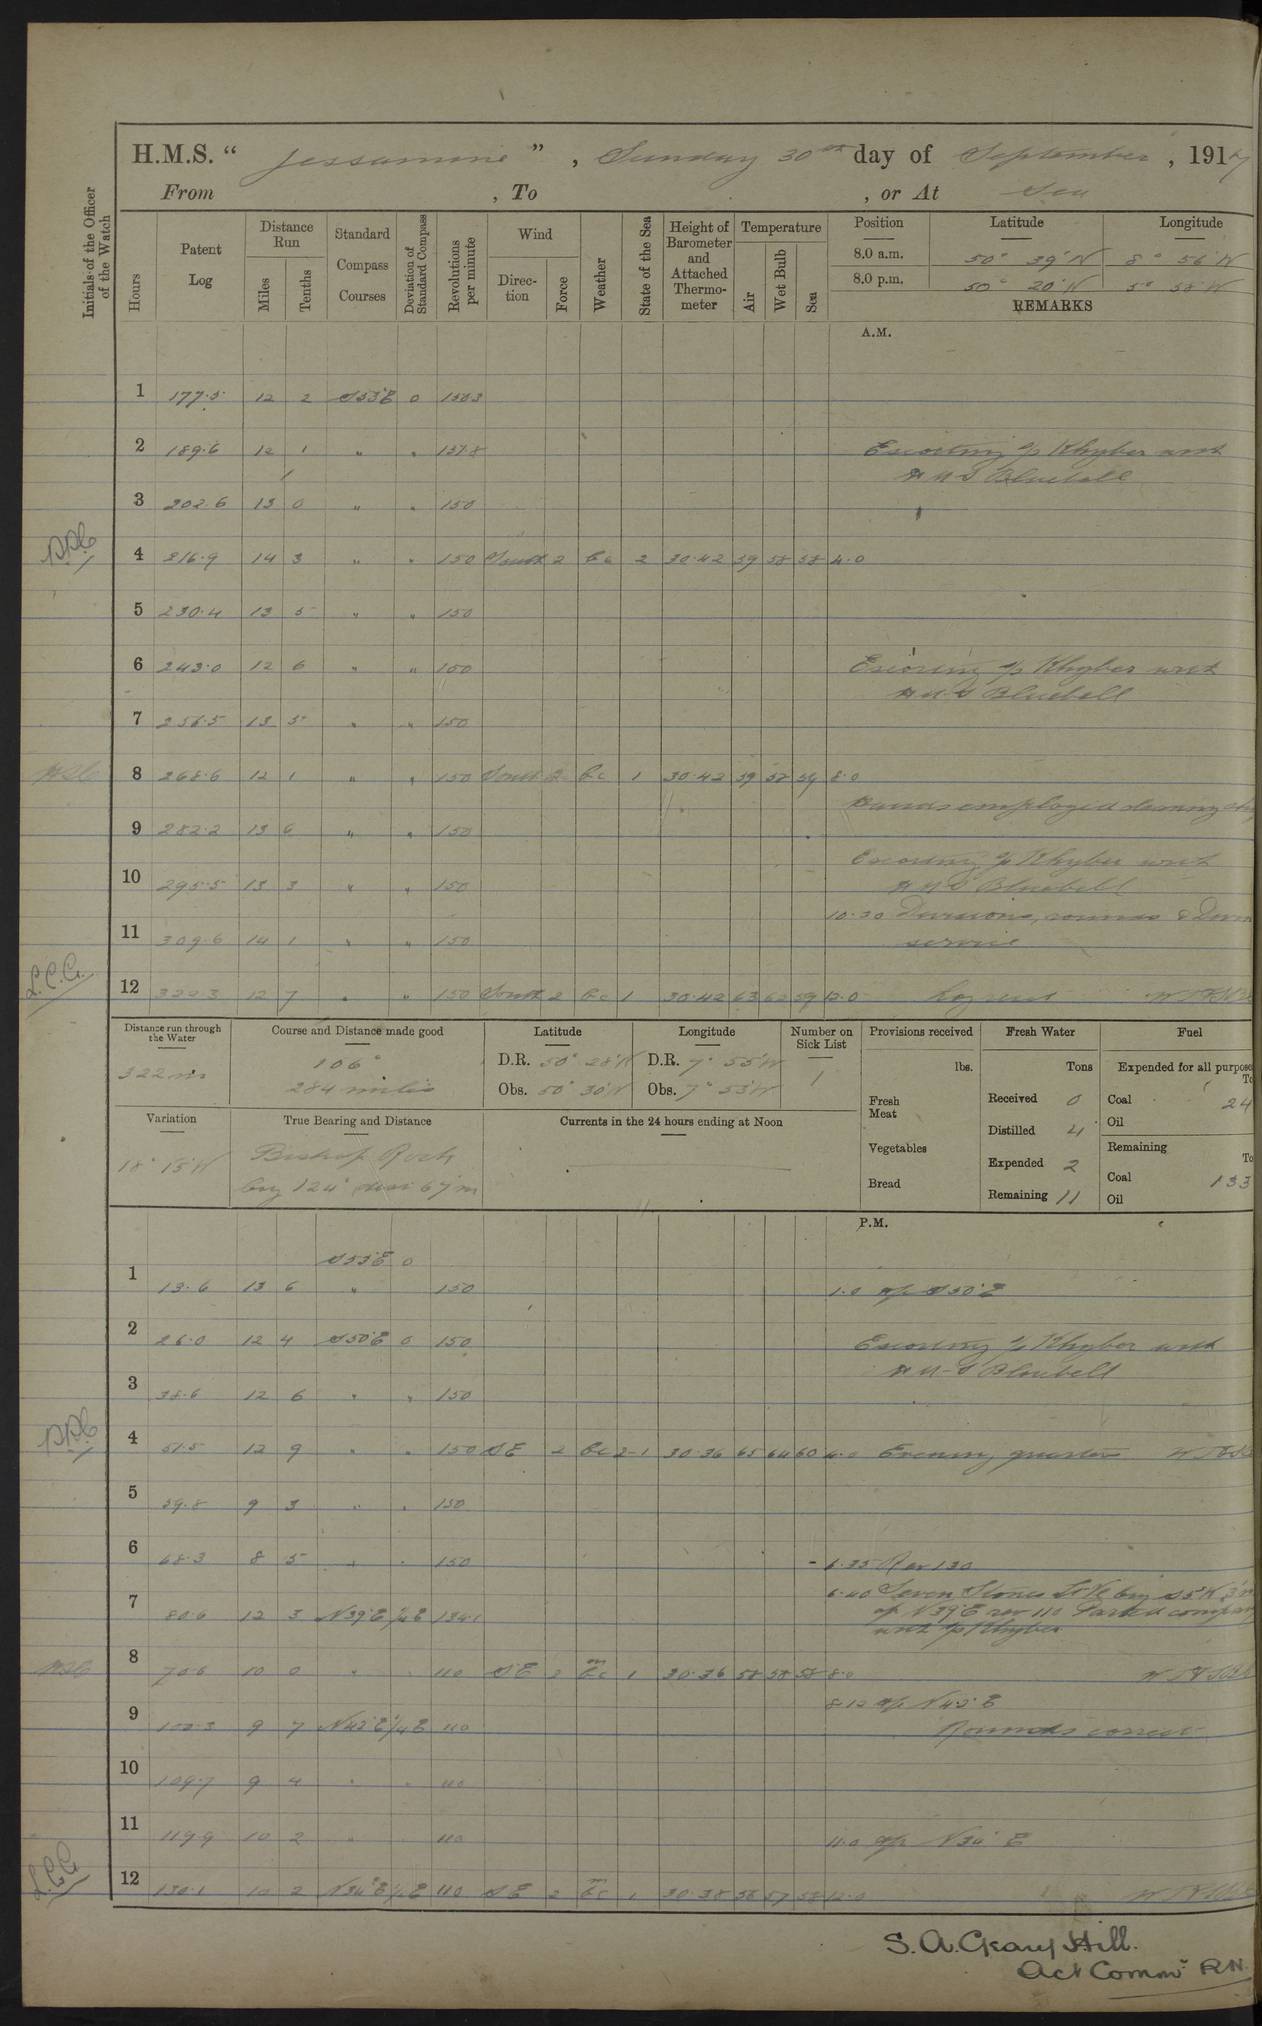 H.M.S. “ Jessamine ” , Sunday 30th day of September , 1917
From , To , or At Sea
Initials of the Officer of the Watch
Hours Patent Log Distance Run Miles Tenths Standard Compass Courses Deviation of Standard Compass Revolutions per minute Wind Direction Force Weather State of the Sea Height of Barometer and Attached Thermometer Temperature Air Wet Bulb Sea Position Latitude Longitude
8.0 a.m. 50° 39'N 8° 56'W
8.0 p.m. 50° 20'N 5° 58'W
REMARKS
A.M.
1 177.5 12 2 S53°E 0 150.3
2 189.6 12 1 " " 137.8 Escorting s/s Khyber with
H M S Bluebell
3 202.6 13 0 " " 150
4 216.9 14 3 " " 150 South 2 bc 2 30.42 59 58 58 4.0
5 230.4 13 5 " " 150
6 243.0 12 6 " " 150 Escorting s/s Khyber with
H M S Bluebell
7 256.5 13 5 " " 150
8 268.6 12 1 " " 150 South 2 bc 1 30.42 59 58 59 8.0
Hands employed cleaning
9 282.2 13 6 " " 150
Escorting s/s Khyber with
10 295.5 13 3 " " 150 H M S Bluebell
10.30 Divisions, &
11 309.6 14 1 " " 150 service
L.C.G. 12 322.3 12 7 " " 150 South 2 bc 1 30.42 63 62 59 12.0
Distance run through the Water Course and Distance made good Latitude Longitude Number on Sick List Provisions received Fresh Water Fuel
322 m 106° D.R. 50° 28'N D.R. 7° 55'W 1 lbs. Tons Expended for all purpose
284 miles Obs. 50° 30'N Obs. 7° 53'W Fresh Meat Received 0 Coal 24
Variation True Bearing and Distance Currents in the 24 hours ending at Noon Distilled 4 Oil
18° 15'W Bishop Rock Vegetables Expended 2 Remaining
brg 124° dist 67 m Bread Remaining 11 Coal 133
Oil
P.M.
S53°E 0
1 13.6 13 6 " 150 1.0 a/c S50°E
2 26.0 12 4 S50°E 0 150 Escorting s/s Khyber with
H M S Bluebell
3 38.6 12 6 " " 150
4 51.5 12 9 " " 150 SE 2 bc 2-1 30.36 65 64 60 4.0 Evening quarters
5 59.8 9 3 " " 150
6 68.3 8 5 " " 150 6.35 Rev 130
6.40 Seven Stones Lt Ve brg S5°W
7 80.6 12 3 N39°E ¼E 134.1 a/c N39°E rev 110 Parted company
with s/s Khyber
8 10 0 " " 110 SE 2 bcm 1 30.36 58 58 58 8.0
8.12 a/c N42°E
9 9 7 N42°E ¼E 110 Rounds correct
10 109.7 9 4 " " 110
11 119.9 10 2 " " 110 11.0 a/c N34°E
12 130.1 10 2 N34°E 110 SE 2 bcm 1 30.38 58 57 58 12.0
S. A. Geary Hill.
Act Commr RN.